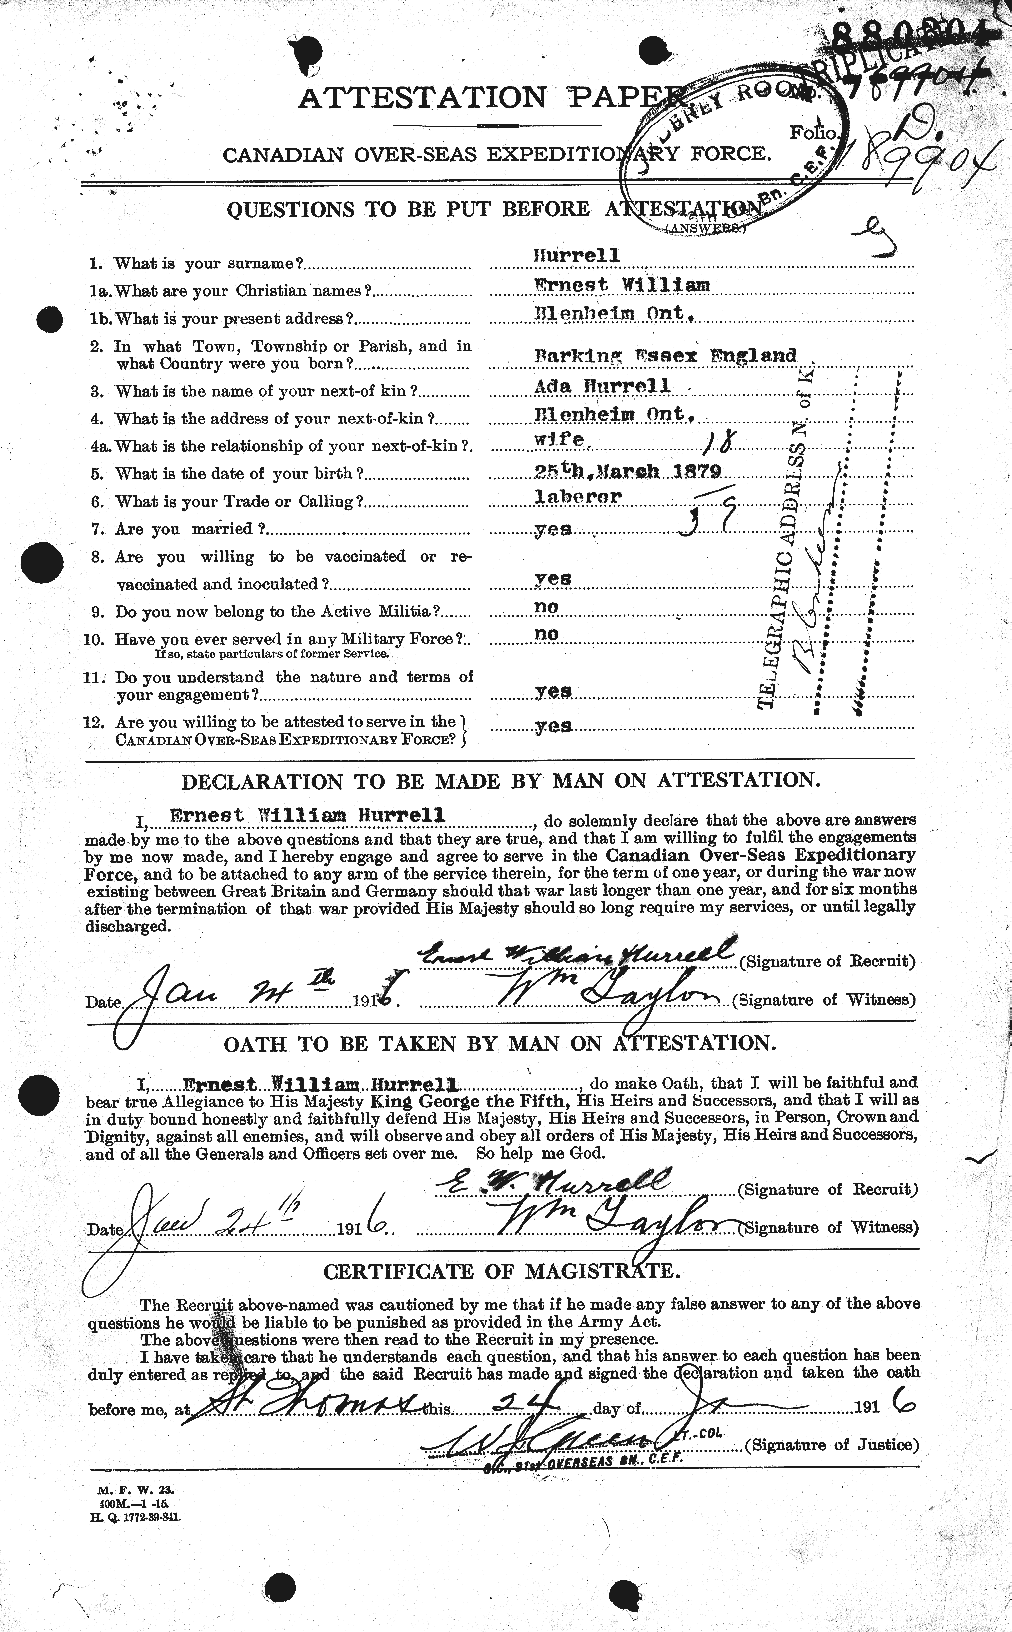 880804
TRIPLICATE
ATTESTATION PAPER.
No.
ORDERLY ROOM
Folio.
D.
189904
CANADIAN OVER-SEAS EXPEDITIONARY FORCE.
Bn. C.E.F.
QUESTIONS TO BE PUT BEFORE ATTESTATION
(ANSWERS)
1. What is your surname? Hurrell
1a. What are your Christian names? Ernest William
1b. What is your present address? Blenheim Ont.
2. In what Town, Township or Parish, and in
what Country were you born? Barking Essex England
3. What is the name of your next-of kin? Ada Hurrell
4. What is the address of your next-of-kin? Blenheim Ont.
4a. What is the relationship of your next-of-kin? wife. 18
5. What is the date of your birth? 25th, March 1879
6. What is your Trade or Calling? laboror
7. Are you married? yes
8. Are you willing to be vaccinated or re-
vaccinated and inoculated? yes
9. Do you now belong to the Active Militia? no
10. Have you ever served in any Military Force? no
If so, state particulars of former Service.
11. Do you understand the nature and terms of
your engagement? yes
12. Are you willing to be attested to serve in the
CANADIAN OVER-SEAS EXPEDITIONARY FORCE? yes
TELEGRAPHIC ADDRESS N. of K.
DECLARATION TO BE MADE BY MAN ON ATTESTATION.
I, Ernest William Hurrell, do solemnly declare that the above are answers
made by me to the above questions and that they are true, and that I am willing to fulfil the engagements
by me now made, and I hereby engage and agree to serve in the Canadian Over-Seas Expeditionary
Force, and to be attached to any arm of the service therein, for the term of one year, or during the war now
existing between Great Britain and Germany should that war last longer than one year, and for six months
after the termination of that war provided His Majesty should so long require my services, or until legally
discharged.
Ernest William Hurrell (Signature of Recruit)
Date Jan 24th 1916. Wm Taylor (Signature of Witness)
OATH TO BE TAKEN BY MAN ON ATTESTATION.
I, Ernest William Hurrell, do make Oath, that I will be faithful and
bear true Allegiance to His Majesty King George the Fifth, His Heirs and Successors, and that I will as
in duty bound honestly and faithfully defend His Majesty, His Heirs and Successors, in Person, Crown and
Dignity, against all enemies, and will observe and obey all orders of His Majesty, His Heirs and Successors,
and of all the Generals and Officers set over me. So help me God.
E. W. Hurrell (Signature of Recruit)
Date Jan 24th 1916. Wm Taylor (Signature of Witness)
CERTIFICATE OF MAGISTRATE.
The Recruit above-named was cautioned by me that if he made any false answer to any of the above
questions he would be liable to be punished as provided in the Army Act.
The above questions were then read to the Recruit in my presence.
I have taken care that he understands each question, and that his answer to each question has been
duly entered as replied to, and the said Recruit has made and signed the declaration and taken the oath
before me, at St Thomas this 24 day of Ja 1916
W J Green LT.-COL (Signature of Justice)
O.C., 91st OVERSEAS BN., C.E.F.
M. F. W. 23.
400M.—1-15.
H. Q. 1772-39-841.